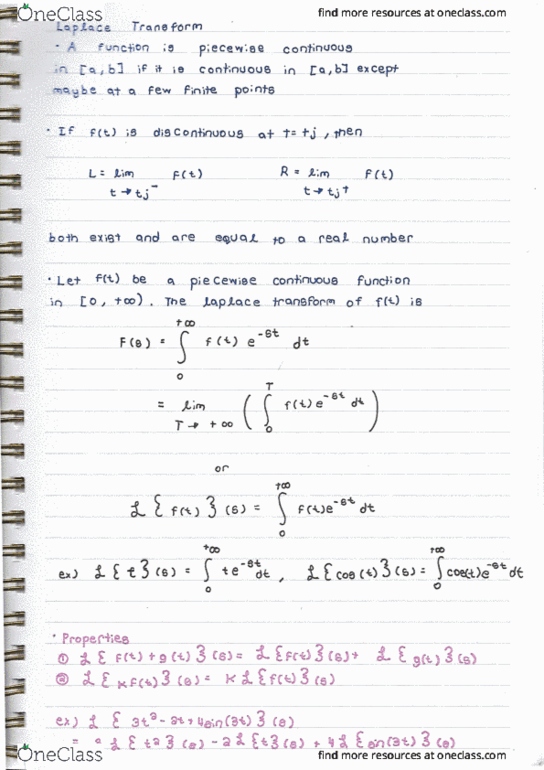 OneClass find more resources at oneclass.com
Laplace Transform
· A function is piecewise continuous
in [a,b] if it is continuous in [a,b] except
maybe at a few finite points
· If f(t) is discontinuous at t=tj, then
L = lim f(t) R = lim f(t)
t→tj⁻ t→tj⁺
both exist and are equal to a real number
· Let f(t) be a piecewise continuous function
in [0, +∞). The laplace transform of f(t) is
F(s) = ∫₀^{+∞} f(t) e^{-st} dt
= lim_{T→+∞} ( ∫₀^T f(t)e^{-st} dt )
or
ℒ{f(t)}(s) = ∫₀^{+∞} f(t)e^{-st} dt
ex) ℒ{t}(s) = ∫₀^{+∞} te^{-st} dt, ℒ{cos(t)}(s) = ∫₀^{+∞} cos(t)e^{-st} dt
· Properties
① ℒ{f(t)+g(t)}(s) = ℒ{f(t)}(s) + ℒ{g(t)}(s)
② ℒ{kf(t)}(s) = kℒ{f(t)}(s)
ex) ℒ{3t² - 2t + 4sin(3t)}(s)
= ℒ{t²}(s) - 2ℒ{t}(s) + 4ℒ{sin(3t)}(s)
OneClass find more resources at oneclass.com